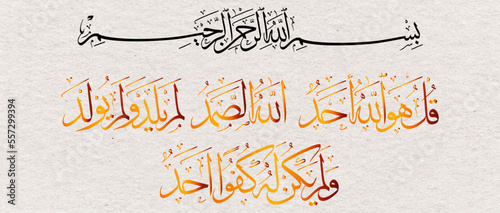 بِسْمِ اللَّهِ الرَّحْمَٰنِ الرَّحِيمِ
قُلْ هُوَ اللَّهُ أَحَدٌ اللَّهُ الصَّمَدُ لَمْ يَلِدْ وَلَمْ يُولَدْ
وَلَمْ يَكُنْ لَهُ كُفُوًا أَحَدٌ
557299394